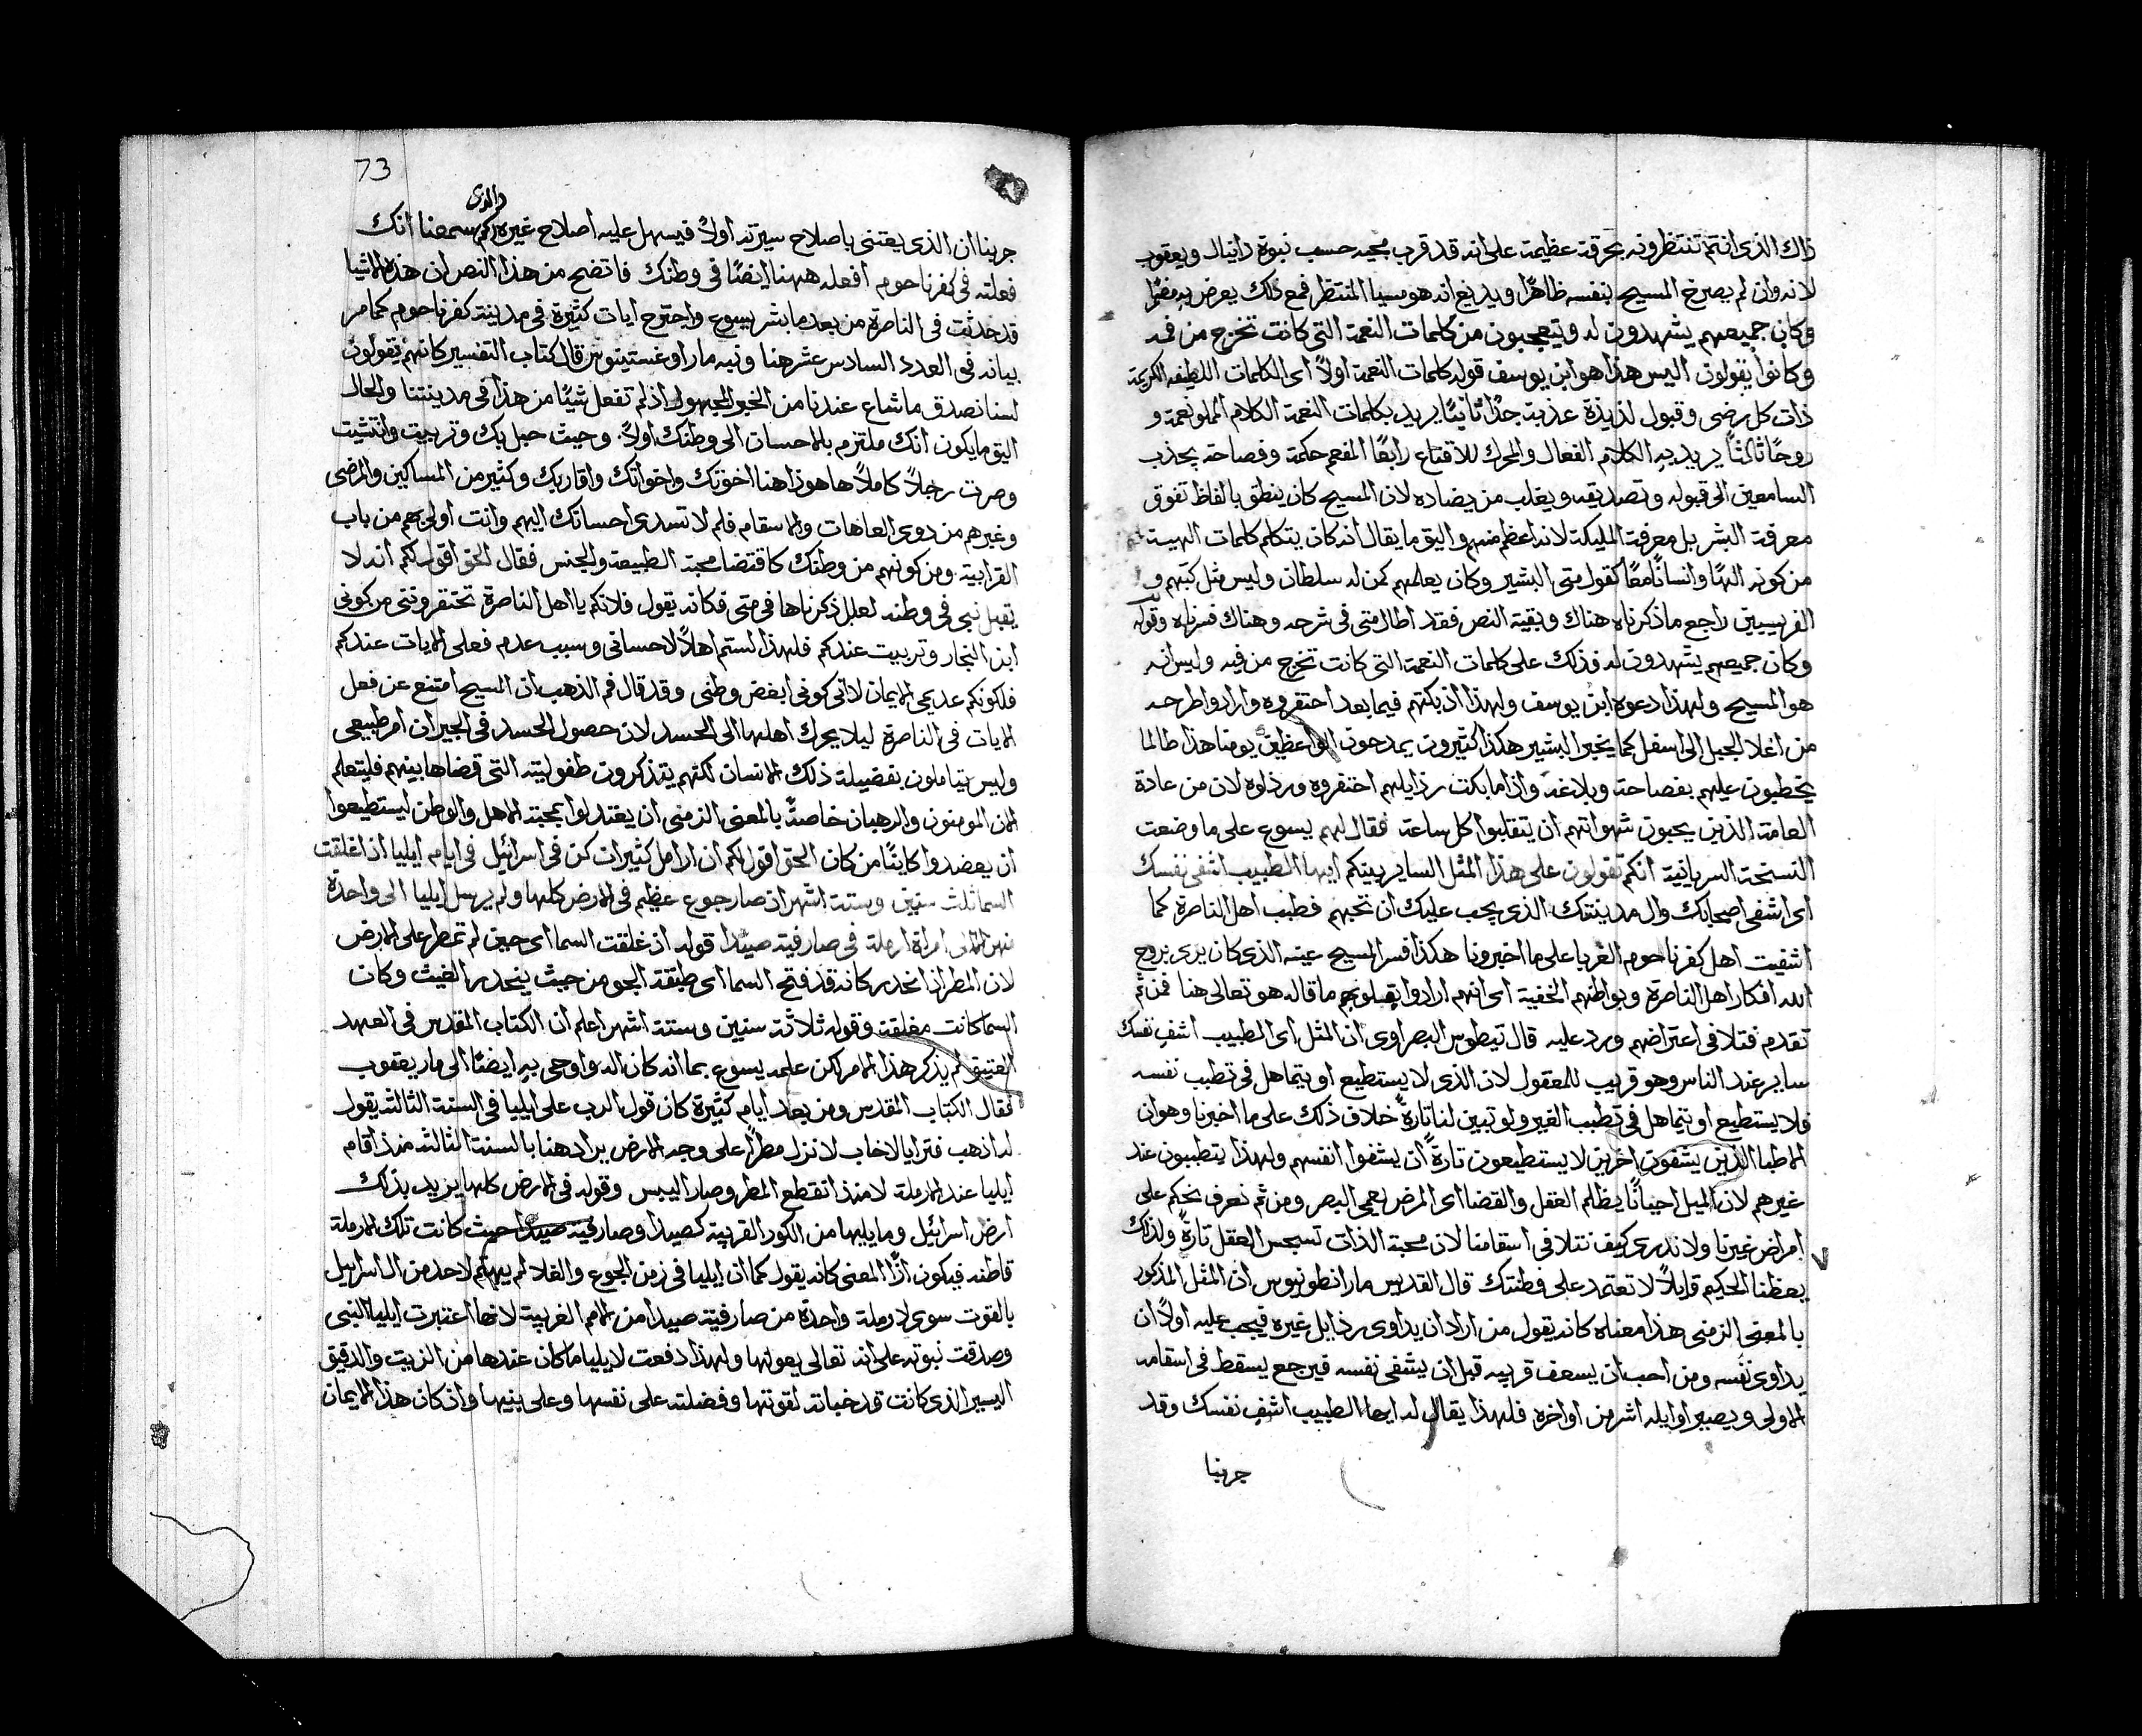 ذاك الذى انتم تنتظرونه بحرقة عظيمة على انه قد قرب مجيه حسب نبوة دانيال ويعقوب
لانه وان لم يصرخ المسيح بنفسه ظاهرًا ويذيع انه هو مسيا المنتظر فمع ذلك يعرض به مضمرًا
وكان جميعهم يشهدون له ويتعجبون من كلمات النعمة التى كانت تخرج من فمه
وكانوا يقولون اليس هذا هو ابن يوسف قوله كلمات النعمة اولاً اى الكلمات اللطيفه الكريمة
ذات كل رضى وقبول لذيذة عذبة جدًا ثانيًا يريد بكلمات النعمة الكلام المملو نعمة و
روحًا ثالثًا يريد به الكلام الفعال والمحرك للاقتاع رابعًا المفعم حكمة وفصاحة يجذب
السامعين الى قبوله وتصديقه ويغلب من يضاده لان المسيح كان ينطق بالفاظ تفوق
معرفة البشر بل معرفة المليكة لانه اعظم منهم واليق ما يقال انه كان يتكلم كلمات الهية
من كونه الهًا وانسانًا معًا كقول متى البشير وكان يعلمهم كمن له سلطان وليس مثل كتبهم و
الفريسيين راجع ما ذكرناه هناك وبقية النص فقد اطال متى فى شرحه وهناك فسرناه وقوله
وكان جميعهم يشهدون له فذلك على كلمات النعمة التى كانت تخرج من فيه وليس انه
هو المسيح ولهذا دعوه ابن يوسف ولهذا اذ بكتهم فيما بعد احتقروه وارادوا طرحه
من اعلا الجبل الى اسفل كما يخبر البشير هكذا كثيرون يمدحون الواعظين يومنا هذا طالما
يخطبون عليهم بفصاحة وبلاغة واذا ما بكت رذايلهم احتقروه ورذلوه لان من عادة
العامة الذين يحبون شهواتهم ان يتقلبوا كل ساعة فقال لهم يسوع على ما وضعت
النسخة السريانية انكم تقولون على هذا المثل الساير بينكم ايها الطبيب اشفى نفسك
اى اشفى اصحابك وال مدينتك الذى يجب عليك ان تحبهم فطبب اهل الناصرة كما
اشفيت اهل كفرناحوم الغربا على ما اخبرونا هكذا فسر المسيح عينه الذى كان يرى بروح
الله افكار اهل الناصرة وبواطنهم الخفية اى انهم ارادوا ما قاله هو تعالى هنا فمن ثم
تقدم فتلافى اعتراضهم ورد عليه قال تيطوس البصراوى ان المثل اى الطبيب اشف نفسك
ساير عند الناس وهو قريب للمعقول لان الذى لا يستطيع او يتماهل فى تطبب نفسه
فلا يستطيع او يتماهل فى تطبب الغير ولو تبين لنا تارةً خلاف ذلك على ما اخبرنا وهو ان
الاطبا الذين يشفون اخرين لا يستطيعون تارةً ان يشفوا انفسهم ولهذا يتطببون عند
غيرهم لان الميل احيانًا يظلم العقل والقضا اى المرض يعمى البصر ومن ثم نعرف نحكم على
امراض غيرنا ولا ندرى كيف نتلافى اسقامنا لان محبة الذات تسجس العقل تارةً ولذلك
يعظنا الحكيم قايلاً لا تعتمد على فطنتك قال القديس مار انطونيوس ان المثل المذكور
بالمعنى الزمنى هذا معناه كانه يقول من اراد ان يداوى رذايل غيره فيجب عليه اولاً ان
يداوى نفسه ومن احب ان يسعف قريبه قبل ان يشفى نفسه فيرجع يسقط فى اسقامه
الاولى ويصير اوايله اشر من اواخره فلهذا يقال له ايها الطبيب اشفِ نفسك وقد
جربنا
73
والذى
جربنا ان الذى يعتنى باصلاح سيرته اولاً فيسهل عليه اصلاح غيره سمعنا انك
فعلته فى كفرناحوم افعله ههنا ايضًا فى وطنك فاتضح من هذا النص ان هذه الاشيا
قد حدثت فى الناصرة من بعد ما بشر يسوع واجترح ايات كثيرة فى مدينة كفرناحوم كما مر
بيانه فى العدد السادس عشر هنا ونبه مار اوغستينوس قال كتاب التفسير كانهم يقولون
لسنا نصدق ما شاع عندنا من الخبر المجهول اذ لم تفعل شيًا من هذا فى مدينتنا والحال
اليق ما يكون انك ملتزم بالاحسان الى وطنك اولاً. وحيث حبل بك وتربيت وانتشيت
وصرت رجلاً كاملاً ها هوذا هنا اخوتك واخواتك واقاربك وكثير من المساكين والمرضى
وغيرهم من ذوى العاهات والاسقام فلم لا تسدى احسانك اليهم وانت اولى بهم من باب
القرابية ومن كونهم من وطنك كاقتضا محبة الطبيعة والجنس فقال الحق اقول لكم انه لا
يقبل نبى فى وطنه لعلل ذكرناها فى متى فكانه يقول فلانكم يا اهل الناصرة تحتقروننى من كونى
ابن النجار وتربيت عندكم فلهذا لستم اهلاً لاحسانى وسبب عدم فعلى الايات عندكم
فلكونكم عديمى الايمان لا انى كونى ابغض وطنى وقد قال فم الذهب ان المسيح امتنع عن فعل
الايات فى الناصرة ليلا يحرك اهلها الى الحسد لان حصول الحسد فى الجيران امر طبيعى
وليس يتاملون بفضيلة ذلك الانسان لكنهم يتذكرون طفوليته التى قضاها بينهم فليتعلم
المومنون والرهبان خاصةً بالمعنى الزمنى ان يعتدلوا بمحبة الاهل والوطن ليستطيعوا
ان يعضدوا كاينًا من كان الحق اقول لكم ان ارامل كثيرات كن فى اسرائيل فى ايام ايليا اذ اغلقت
السما ثلث سنين وستة اشهر ان صار جوع عظيم فى الارض كلها ولم يرسل ايليا الى واحدة
منهن الا الى امراة ارملة فى صارفية صيدا قوله اذ غلقت السما اى حين لم تمطر على الارض
لان المطر اذا انحدر كانه قد فتح السما اى طبقة الجو من حيث ينحدر الغيث وكان
السما كانت مغلقة وقوله ثلاثة سنين وستة اشهر اعلم ان الكتاب المقدس فى العهد
العتيق لم يذكر هذا الامر لكن علمه يسوع بما انه كان اله واوحى به ايضًا الى مار يعقوب
فقال الكتاب المقدس ومن بعد ايام كثيرة كان قول الرب على ايليا فى السنة الثالثه يقول
له اذهب فترايا لاخاب لانزل مطرًا على وجه الارض يراد هنا بالسنة الثالثه منذ اقام
ايليا عند الارملة لا منذ انقطع المطر وصار اليبس وقوله فى الارض كلها يريد بذلك
ارض اسرائيل وما يليها من الكور القريبة كصيدا وصارفية صيدا حيث كانت تلك الارملة
قاطنه فيكون اذًا المعنى كانه يقول كما ان ايليا فى زمن الجوع والغلا لم يهتم لاحد من ال اسرائيل
بالقوت سوى لارملة واحدة من صارفية صيدا من الامم الغريبة لانها اعتبرت ايليا النبى
وصدقت نبوته على انه تعالى يعولها ولهذا دفعت لايليا ما كان عندها من الزيت والدقيق
اليسير الذى كانت قد خباته لقوتها وفضلته على نفسها وعلى بنيها واذ كان هذا الايمان